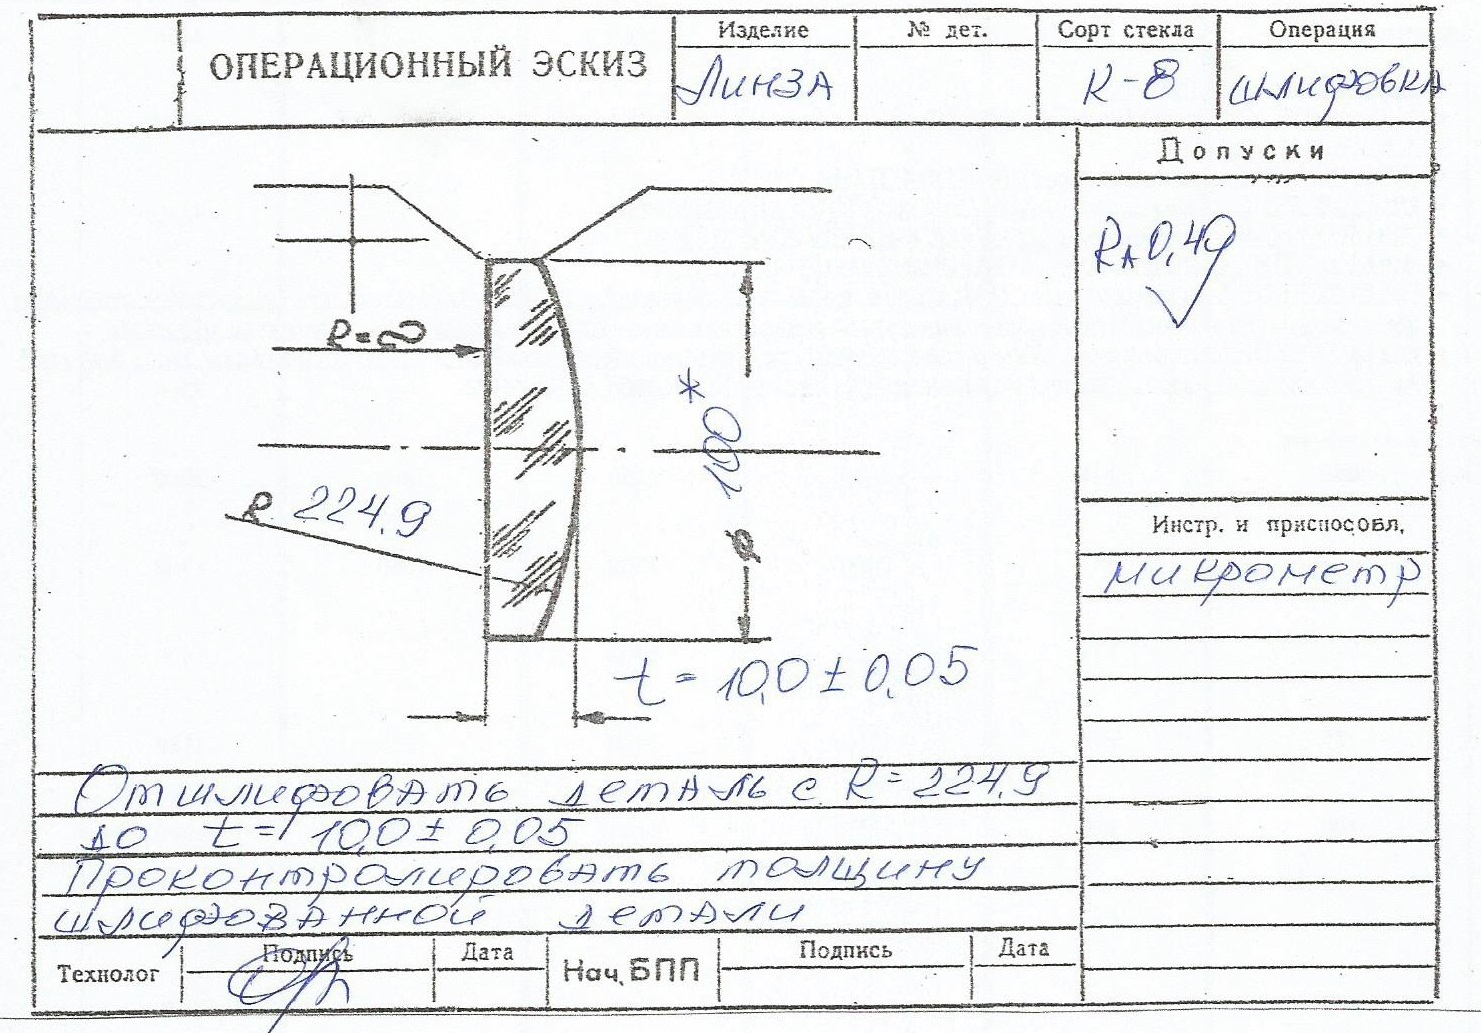 ОПЕРАЦИОННЫЙ ЭСКИЗ
Изделие
Линза
№ дет.
Сорт стекла
К-8
Операция
шлифовка
Допуски
RA 0,49
R=∞
R 224.9
⌀ 100*
t = 10,0 ± 0,05
Инстр. и приспособл.
микрометр
Отшлифовать деталь с R=224.9
до t= 10,0 ± 0,05
Проконтролировать толщину
шлифованной детали
Технолог
Подпись
Дата
Нач. БПП
Подпись
Дата